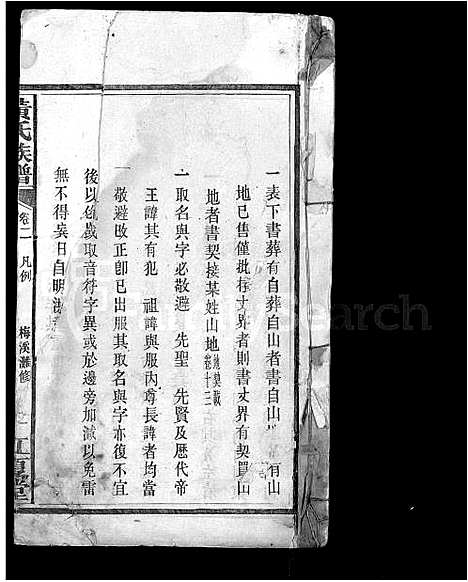 一表下書葬有自葬自山者書自山 有山
地已售僅批存丈界者則書丈界有契買山
地者書契接某姓山地地契載卷十三
一取名與字必敬避 先聖 先賢及歷代帝
王諱其有犯 祖諱與服內尊長諱者均當
敬避改正卽已出服其取名與字亦復不宜
後以 歲取音符字異或於邊旁加減以免雷
無不得矣日自明
黃氏族譜 卷二 凡例 梅溪 修 江夏堂
FamilySearch